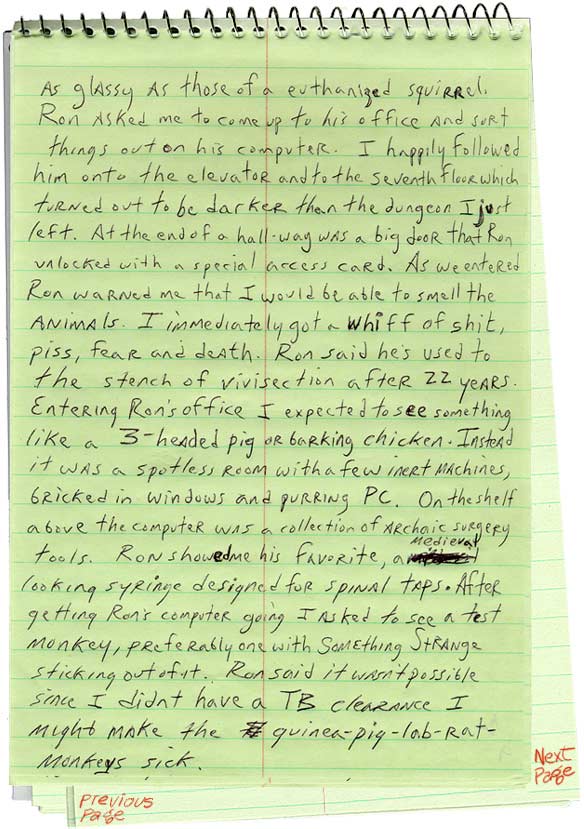 As glassy as those of a euthanized squirrel.
Ron asked me to come up to his office and sort
things out on his computer. I happily followed
him onto the elevator and to the seventh floor which
turned out to be darker than the dungeon I just
left. At the end of a hall-way was a big door that Ron
unlocked with a special access card. As we entered
Ron warned me that I would be able to smell the
animals. I immediately got a whiff of shit,
piss, fear and death. Ron said he's used to
the stench of vivisection after 22 years.
Entering Ron's office I expected to see something
like a 3-headed pig or barking chicken. Instead
it was a spotless room with a few inert machines,
bricked in windows and purring PC. On the shelf
above the computer was a collection of archaic surgery
tools. Ron showed me his favorite, a medieval
looking syringe designed for spinal taps. After
getting Ron's computer going I asked to see a test
monkey, preferably one with something strange
sticking out of it. Ron said it wasn't possible
since I didnt have a TB clearance I
might make the guinea-pig-lab-rat-
monkeys sick.
Next
Page
Previous
Page